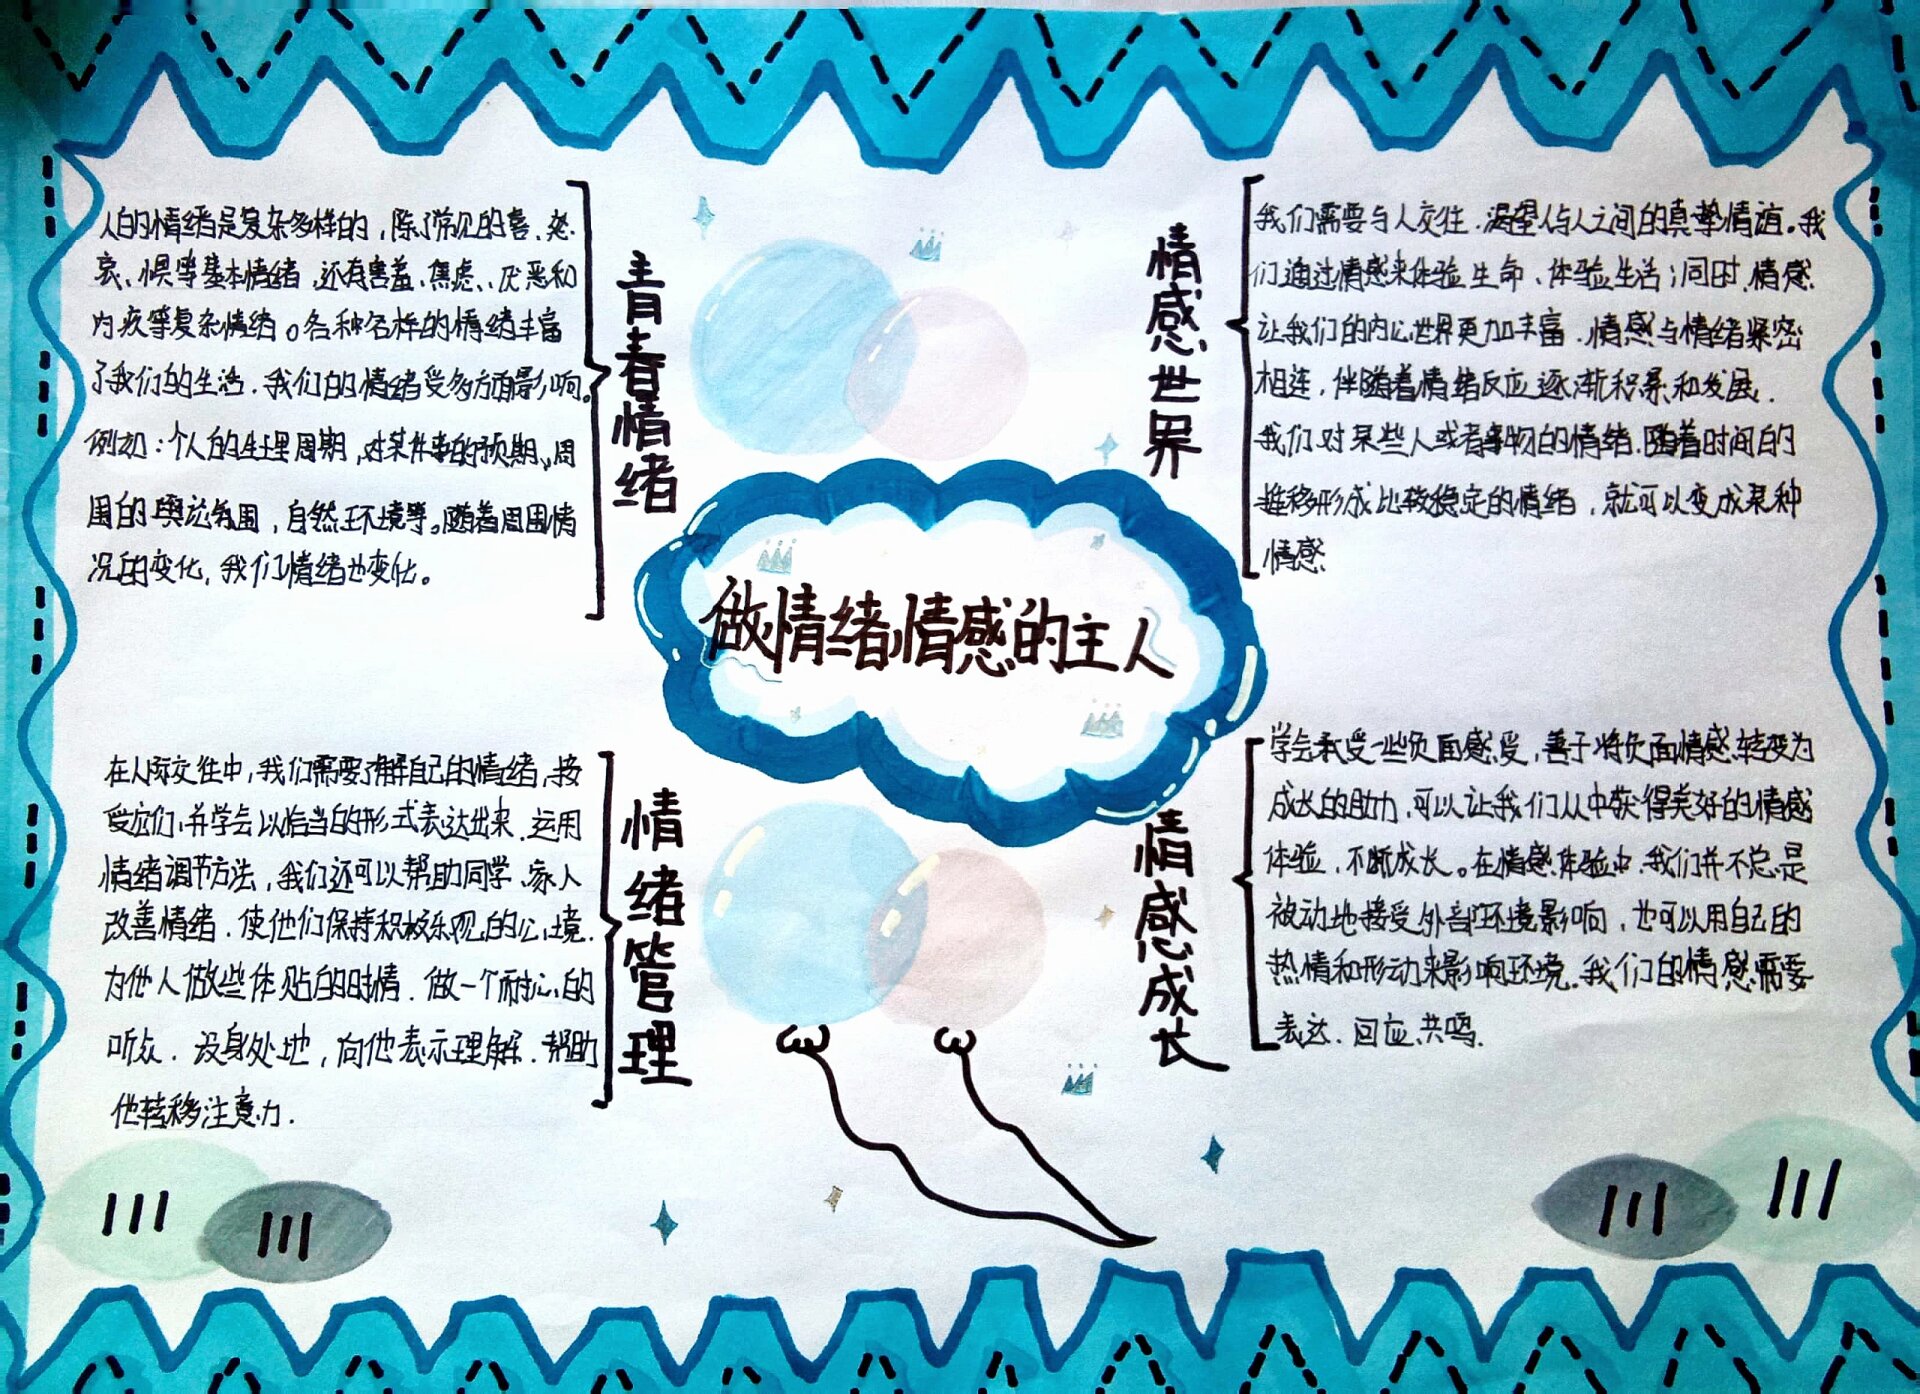 做情绪情感的主人
青春情绪
人的情绪是复杂多样的，除了常见的喜、怒、
哀、惧等基本情绪，还有害羞、焦虑、厌恶和
内疚等复杂情绪。各种各样的情绪丰富
了我们的生活，我们的情绪受多方面影响。
例如：个人的生理周期，对某件事的预期，周
围的舆论氛围，自然环境等。随着周围情
况的变化，我们情绪也变化。
情感世界
我们需要与人交往，渴望人与人之间的真挚情谊。我
们通过情感来体验生命、体验生活；同时，情感
让我们的内心世界更加丰富，情感与情绪紧密
相连，伴随着情绪反应逐渐积累和发展，
我们对某些人或者事物的情绪，随着时间的
推移形成比较稳定的情绪，就可以变成某种
情感
情绪管理
在人际交往中，我们需要了解自己的情绪，接
受应们，并学会以恰当的形式表达出来，运用
情绪调节方法，我们还可以帮助同学、家人
改善情绪，使他们保持积极乐观的心境，
为他人做些体贴的时情，做一个耐心的
听众，设身处地，向他表示理解，帮助
他转移注意力.
情感成长
学会承受一些负面感受，善于将负面情感转变为
成长的助力，可以让我们从中获得美好的情感
体验，不断成长。在情感体验中，我们并不总是
被动地接受外部环境影响，也可以用自己的
热情和形动来影响环境，我们的情感需要
表达、回应、共鸣.